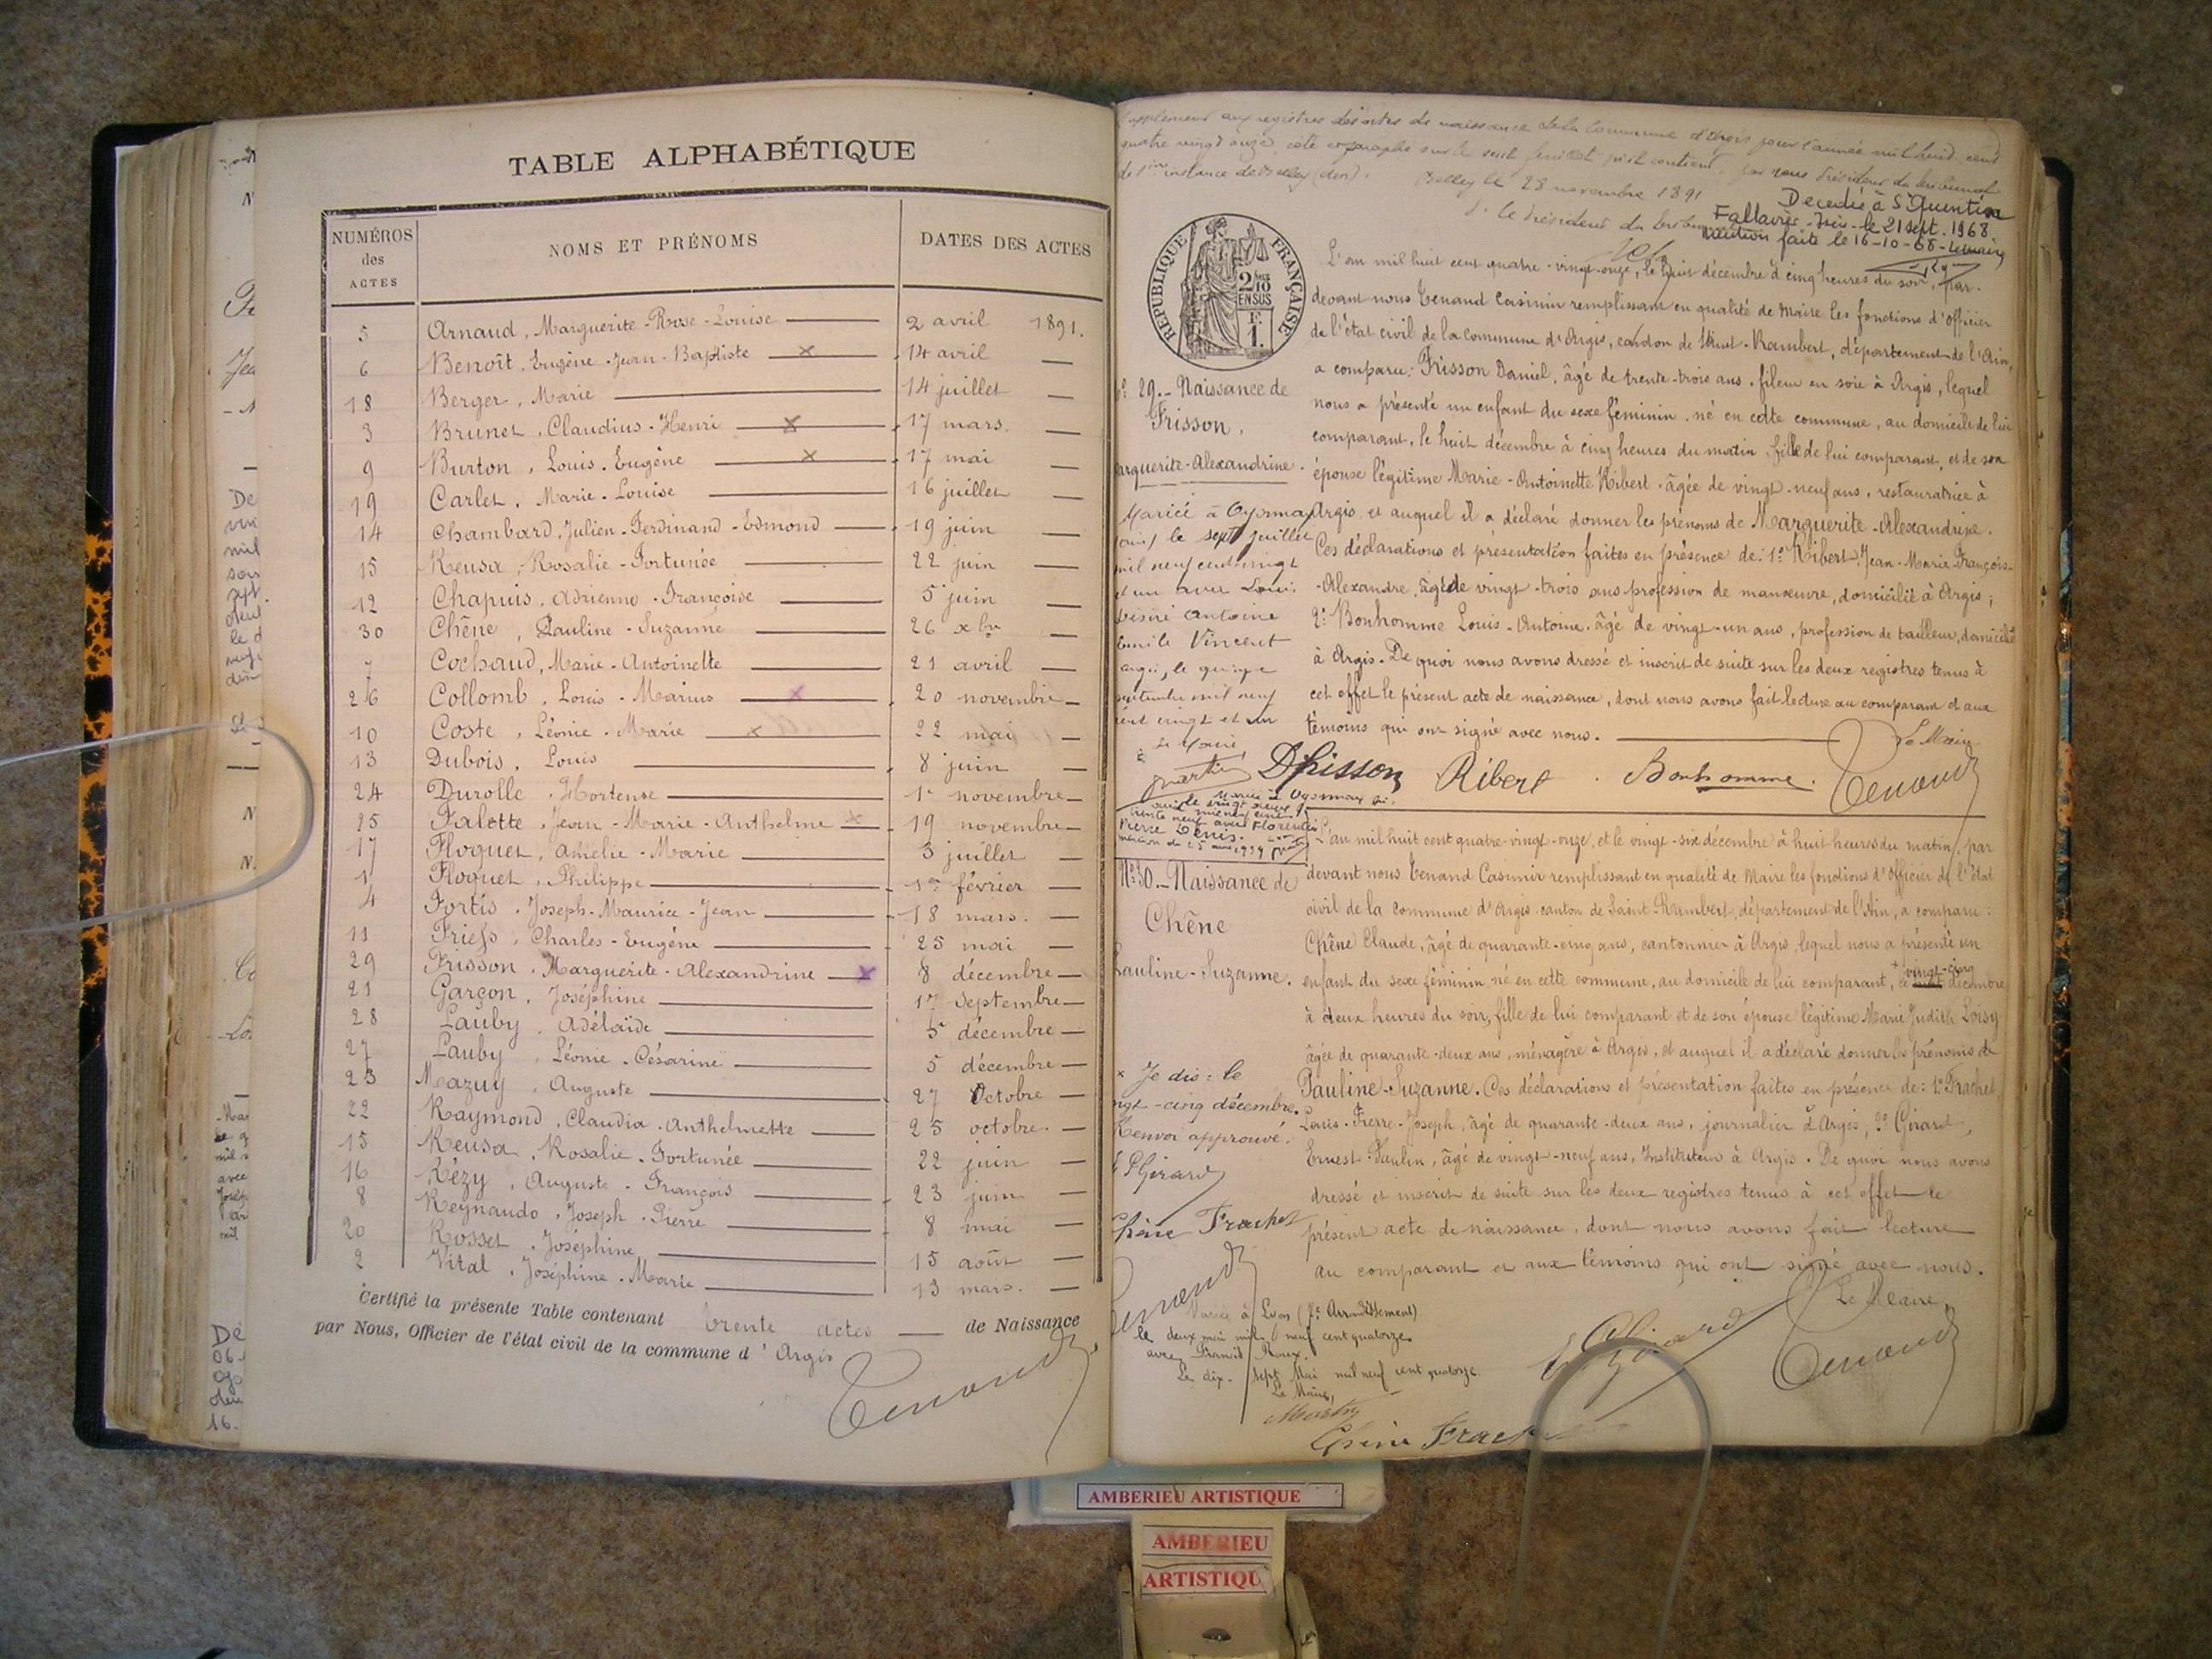 TABLE ALPHABÉTIQUE
NUMÉROS des ACTES
NOMS ET PRÉNOMS
DATES DES ACTES
5 Arnaud, Marguerite-Rose-Louise 2 avril 1891.
6 Benoît, Eugène-Jean-Baptiste 14 avril
18 Berger, Marie 14 juillet
3 Brunet, Claudius-Henri 17 mars.
9 Burton, Louis-Eugène 17 mai
19 Carlet, Marie-Louise 16 juillet
14 Chambard, Julien-Ferdinand-Edmond 19 juin
15 Reusa, Rosalie-Fortunée 22 juin
12 Chapuis, Adrienne-Françoise 5 juin
30 Chêne, Pauline-Suzanne 26 xbre
7 Cochaud, Marie-Antoinette 21 avril
26 Collomb, Louis-Marius 20 novembre
10 Coste, Léonie-Marie 22 mai
13 Dubois, Louis 8 juin
24 Durolle, Hortense 1er novembre
25 Falette, Jean-Marie-Anthelme 19 novembre
17 Floquet, Amélie-Marie 3 juillet
1 Floquet, Philippe 1er février
4 Fortis, Joseph-Maurice-Jean 18 mars.
11 Friess, Charles-Eugène 25 mai
29 Frisson, Marguerite-Alexandrine 8 décembre
21 Garçon, Joséphine 17 Septembre
28 Lauby, Adélaïde 5 décembre
27 Lauby, Léonie-Césarine 5 décembre
23 Mazuy, Auguste 27 Octobre
22 Raymond, Claudia-Anthelmette 25 octobre.
15 Reusa, Rosalie-Fortunée 22 juin
16 Rézy, Auguste-François 23 juin
8 Reynaudo, Joseph-Pierre 8 mai
20 Rosset, Joséphine 15 août
2 Vital, Joséphine-Marie 13 mars.
Certifié la présente Table contenant trente actes de Naissance
par Nous, Officier de l'état civil de la commune d'Argis
Tenand
Supplément aux registres des actes de naissance de la Commune d'Argis pour l'année mil huit cent
quatre vingt onze, coté et paraphé sur le seul feuillet qu'il contient, par nous Président du tribunal
de 1ère instance de Belley (Ain). Belley le 28 novembre 1891
Le Président du tribunal
Décédée à St Quentin
Fallavier-Isère-le 21 sept. 1968
Mention faite le 16-10-68
RÉPUBLIQUE FRANÇAISE
2/10 EN SUS
F. 1.
N° 29.- Naissance de
Frisson,
Marguerite-Alexandrine.
L'an mil huit cent quatre-vingt-onze, le huit décembre à cinq heures du soir, par-
devant nous Tenand Casimir remplissant en qualité de Maire les fonctions d'officier
de l'état civil de la commune d'Argis, canton de Saint-Rambert, département de l'Ain,
a comparu: Frisson Daniel, âgé de trente-trois ans, fileur en soie à Argis, lequel
nous a présenté un enfant du sexe féminin, né en cette commune, au domicile de lui
comparant, le huit décembre à cinq heures du matin, fille de lui comparant, et de son
épouse légitime Marie-Antoinette Ribert, âgée de vingt-neuf ans, restauratrice à
Argis et auquel il a déclaré donner les prénoms de Marguerite-Alexandrine.
Ces déclarations et présentation faites en présence de: 1° Ribert, Jean-Marie-François-
-Alexandre, âgé de vingt-trois ans profession de manœuvre, domicilié à Argis;
2° Bonhomme Louis-Antoine, âgé de vingt-un ans, profession de tailleur, domicilié
à Argis. De quoi nous avons dressé et inscrit de suite sur les deux registres tenus à
cet effet le présent acte de naissance, dont nous avons fait lecture au comparant et aux
témoins qui ont signé avec nous.
Le Maire
DFrisson Ribert Bonhomme Tenand
Mariée à Oyonnax
(Ain) le sept juillet
mil neuf cent vingt
et un avec Louis
Désiré Antoine
Emile Vincent
Argis, le quinze
septembre mil neuf
cent vingt et un
Le Maire,
Martin
Marié à Oyonnax
avec Florentin
Pierre Denis.
N° 30.- Naissance de
Chêne
Pauline-Suzanne.
L'an mil huit cent quatre-vingt-onze, et le vingt-six décembre à huit heures du matin, par
devant nous Tenand Casimir remplissant en qualité de Maire les fonctions d'officier de l'état
civil de la commune d'Argis canton de Saint-Rambert, département de l'Ain, a comparu:
Chêne Claude, âgé de quarante-cinq ans, cantonnier à Argis, lequel nous a présenté un
enfant du sexe féminin, né en cette commune, au domicile de lui comparant, le vingt-cinq décembre
à deux heures du soir, fille de lui comparant et de son épouse légitime Marie Judith Loisy
âgée de quarante-deux ans, ménagère à Argis, et auquel il a déclaré donner les prénoms de
Pauline-Suzanne. Ces déclarations et présentation faites en présence de: 1° Frachet,
Louis-Pierre-Joseph, âgé de quarante-deux ans, journalier à Argis, 2° Girard,
Ernest-Paulin, âgé de vingt-neuf ans, Instituteur à Argis. De quoi nous avons
dressé et inscrit de suite sur les deux registres tenus à cet effet le
présent acte de naissance, dont nous avons fait lecture
au comparant et aux témoins qui ont signé avec nous.
Le Maire
Tenand
× Je dis: le
vingt-cinq décembre.
Renvoi approuvé.
E PGirard
Chêne Frachet
Tenand
Mariée à Lyon (7e Arrondissement)
le deux mai mil neuf cent quatorze
avec Francis Roux.
Le dix-sept Mai mil neuf cent quatorze.
Le Maire,
Martin
E PGirard
Chêne Frachet
AMBERIEU ARTISTIQUE
AMBERIEU
ARTISTIQU